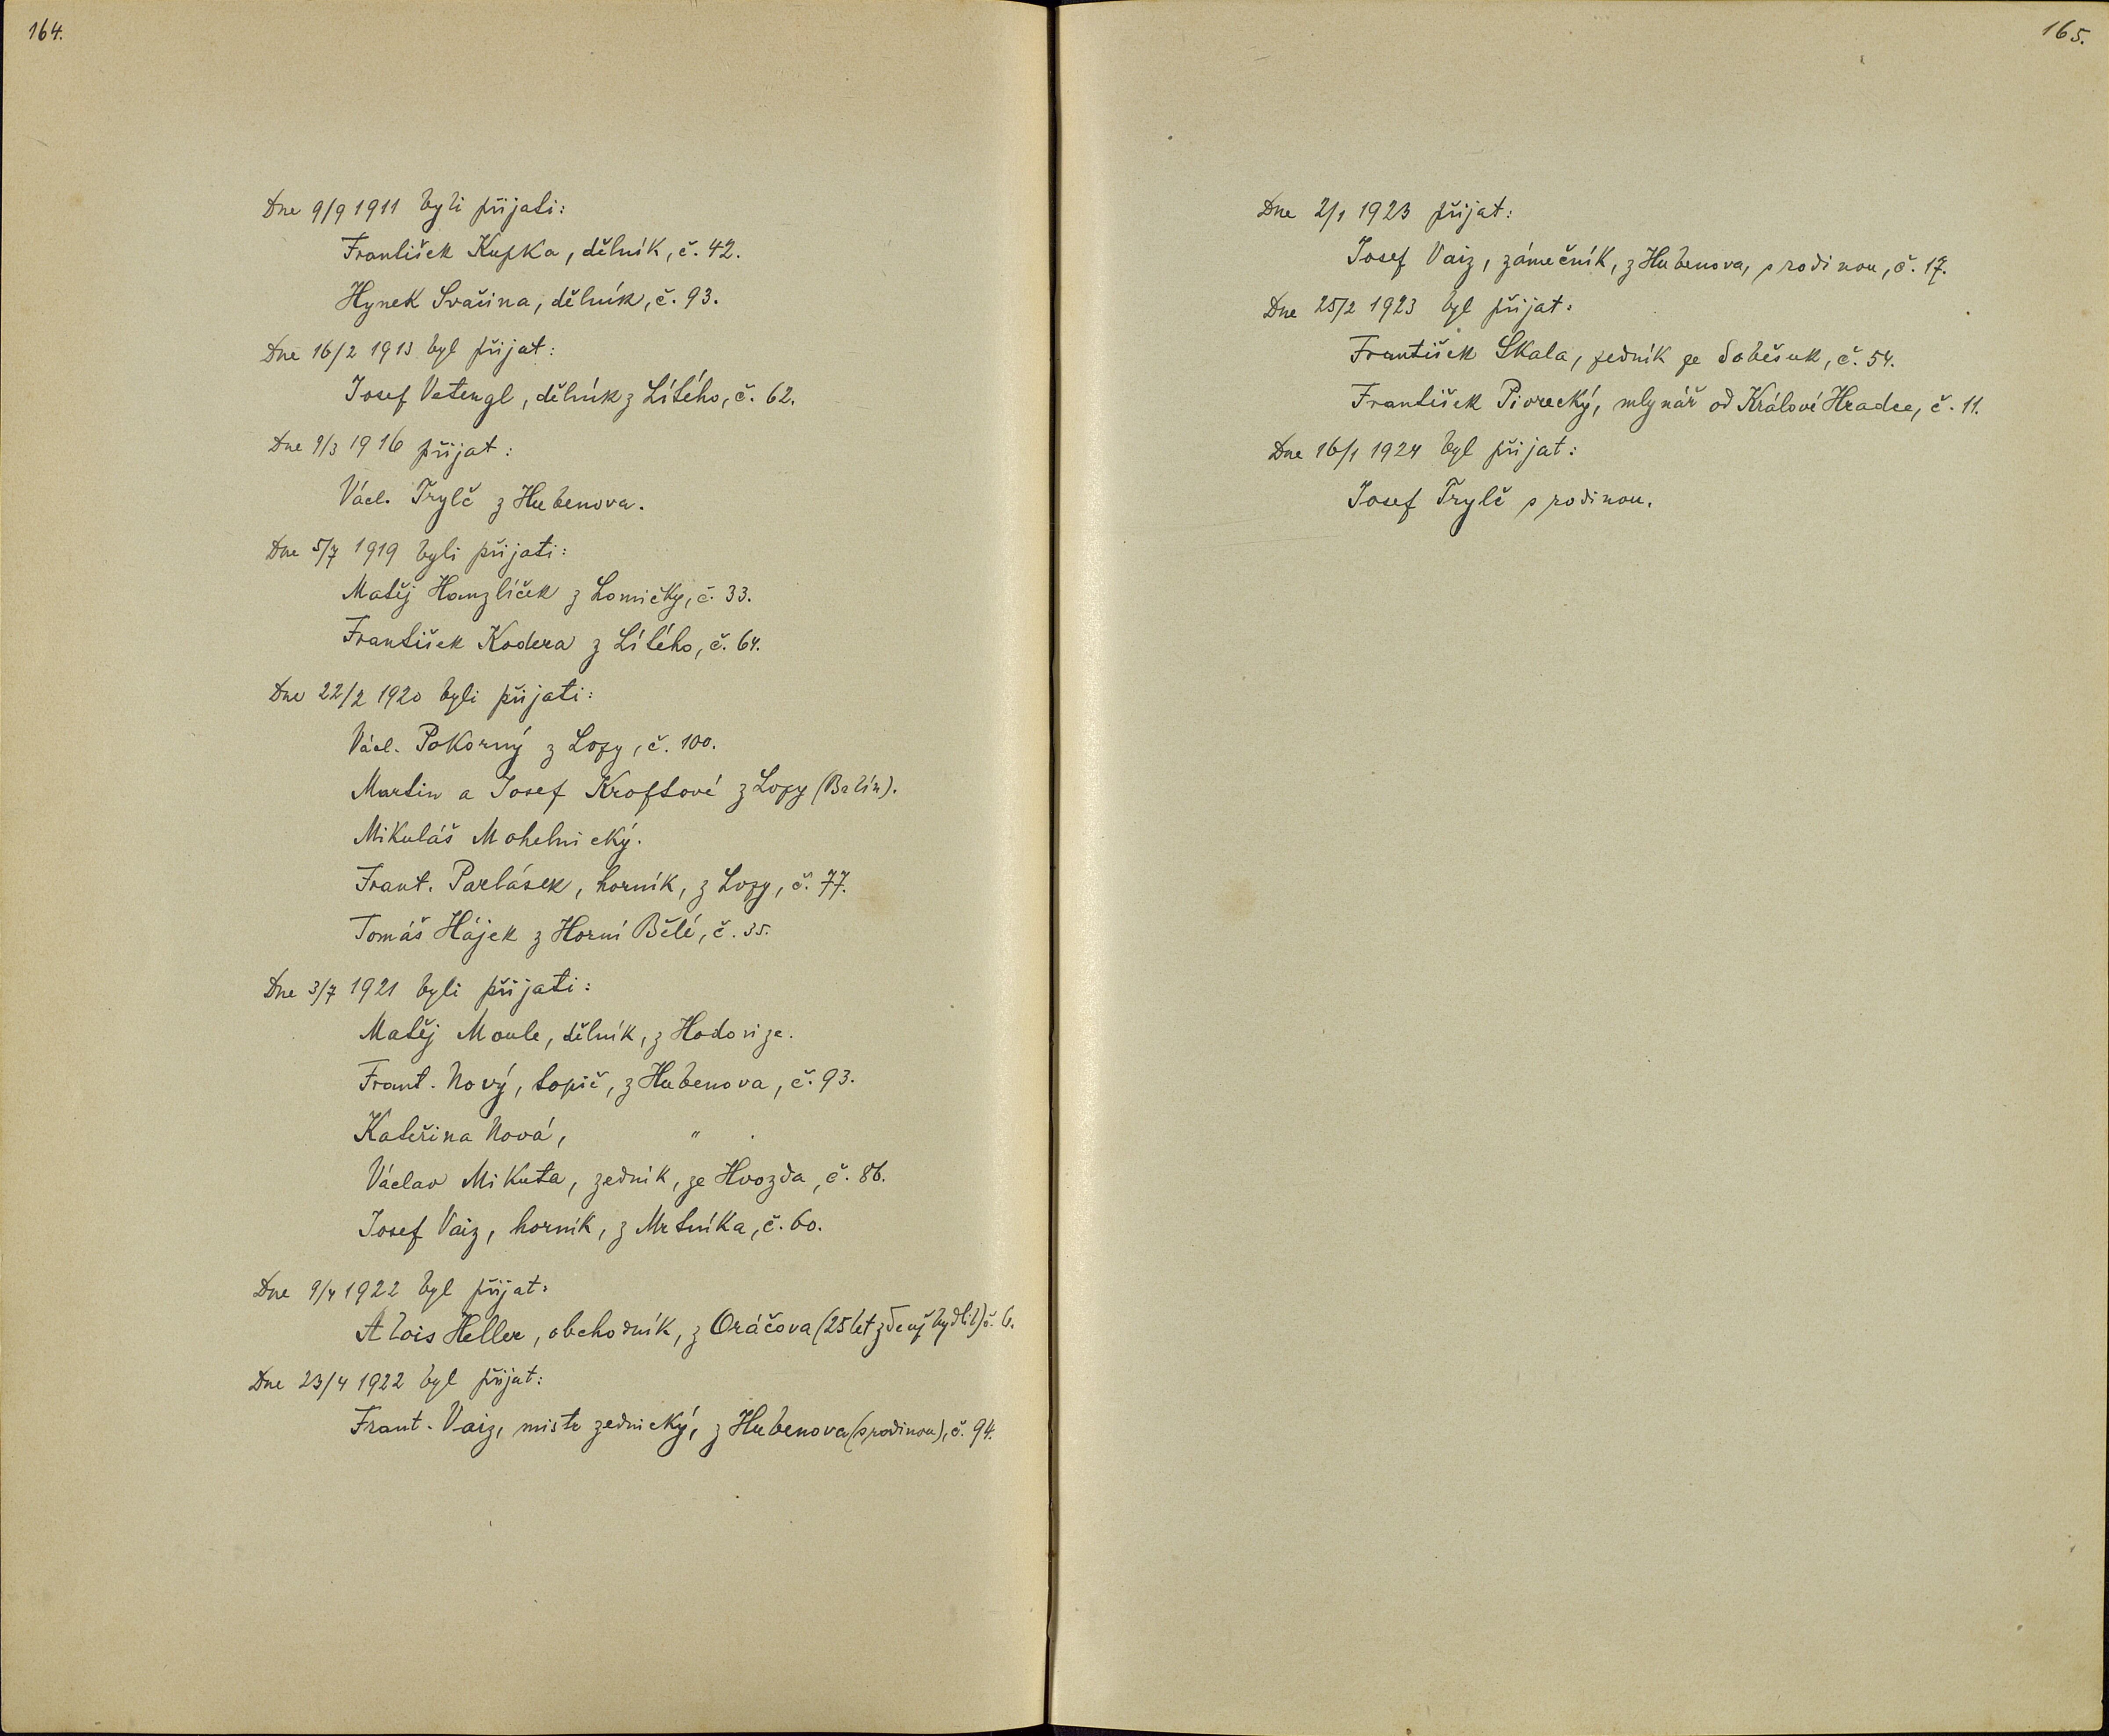 164.
Dne 9/9 1911 byli přijati:
František Kupka, dělník, č. 42.
Hynek Svašina, dělník, č. 93.
Dne 16/2 1913 byl přijat:
Josef Vetengl, dělník z Lítého, č. 62.
Dne 9/3 1916 přijat:
Václ. Trylč z Hubenova.
Dne 5/7 1919 byli přijati:
Matěj Hanzlíček z Lomičky, č. 33.
František Kodera z Lítého, č. 64.
Dne 22/2 1920 byli přijati:
Václ. Pokorný z Lozy, č. 100.
Martin a Josef Kroftové z Lozy (Balín).
Mikuláš Mohelnický.
Frant. Parlásek, horník, z Lozy, č. 77.
Tomáš Hájek z Horní Bělé, č. 35.
Dne 3/7 1921 byli přijati:
Matěj Moule, dělník, z Hodovize.
Frant. Nový, topič, z Hubenova, č. 93.
Kateřina Nová, " .
Václav Mikuta, zedník, ze Hvozda, č. 86.
Josef Vaiz, horník, z Mrtníka, č. 60.
Dne 9/4 1922 byl přijat:
Alois Heller, obchodník, z Oráčova (25 let zde už bydlil) č. 6.
Dne 23/4 1922 byl přijat:
Frant. Vaiz, mistr zednický, z Hubenova (s rodinou), č. 94.
165.
Dne 2/1 1923 přijat:
Josef Vaiz, zámečník, z Hubenova, s rodinou, č. 17.
Dne 25/2 1923 byl přijat:
František Skala, zedník ze Soběšuk, č. 54.
František Piorecký, mlynář od Králové Hradce, č. 11.
Dne 16/1 1924 byl přijat:
Josef Trylč s rodinou.